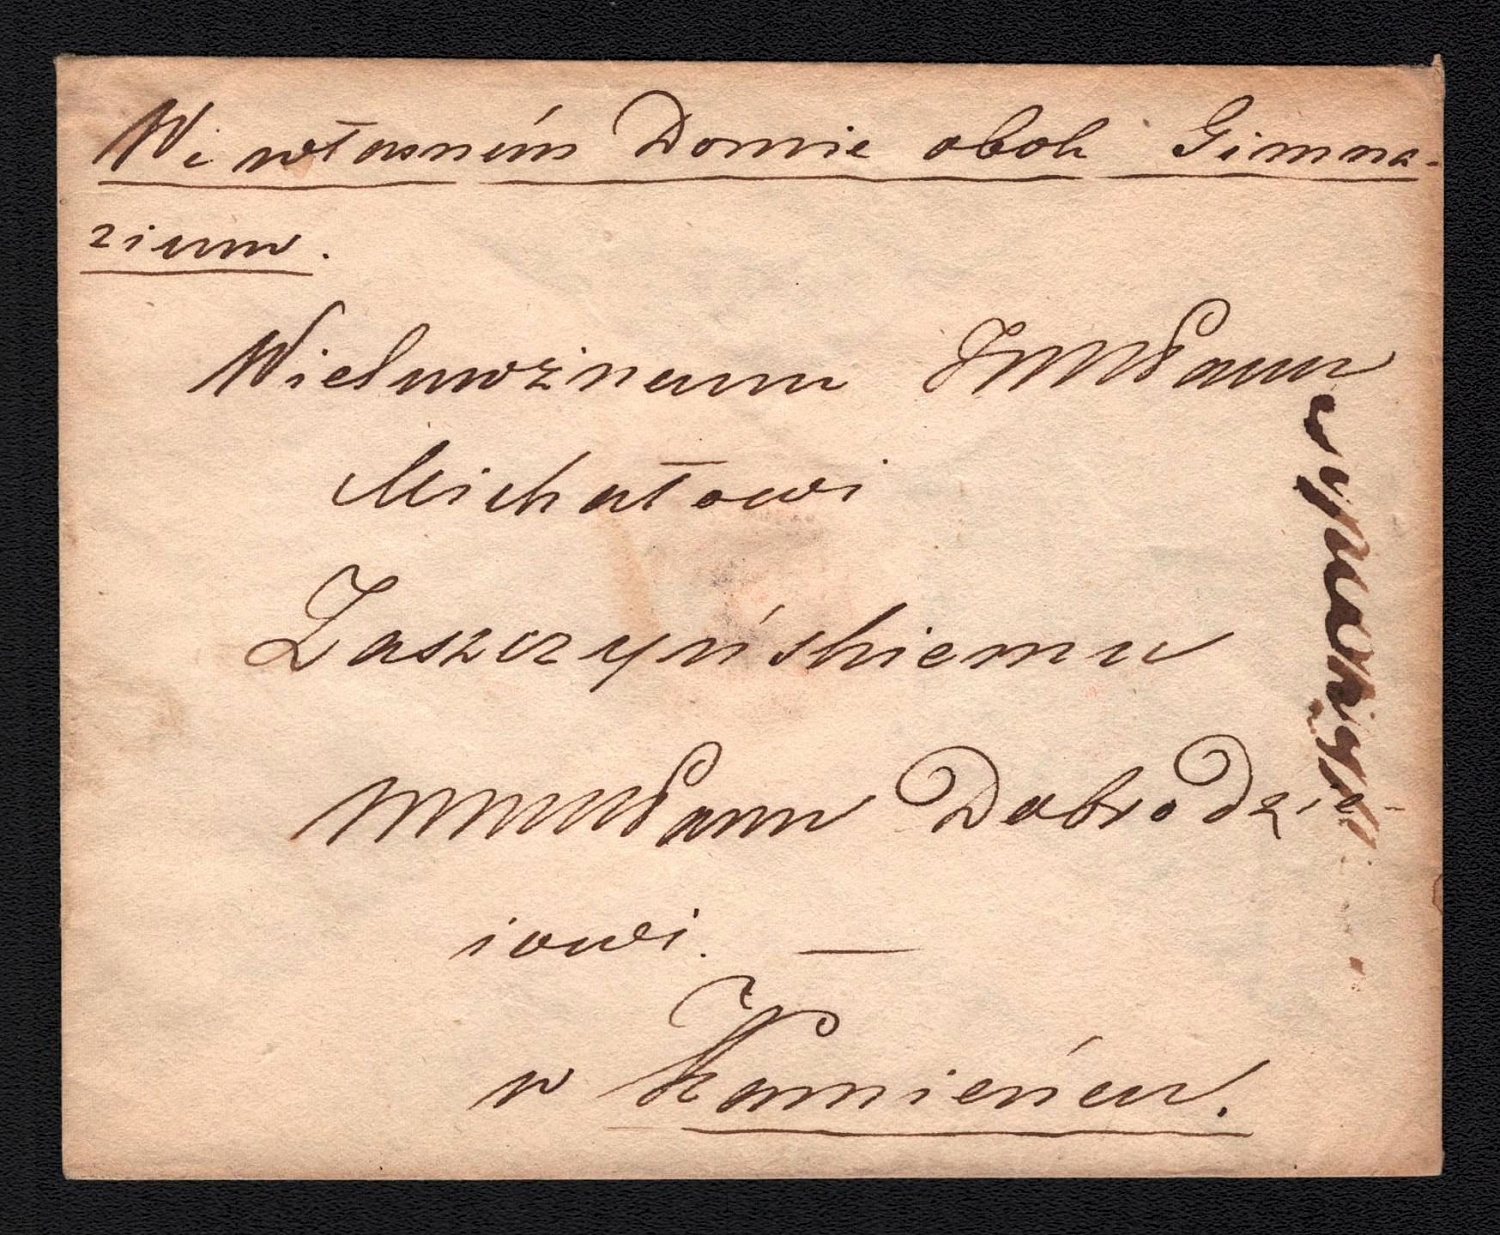 We własném Domie obok Gimna-
zium.
Wielmożnemu JMMPanu
Michałowi
Zaszczyńskiemu
MMMMPanu Dobrodzie-
iowi. —
w Kamieńcu.